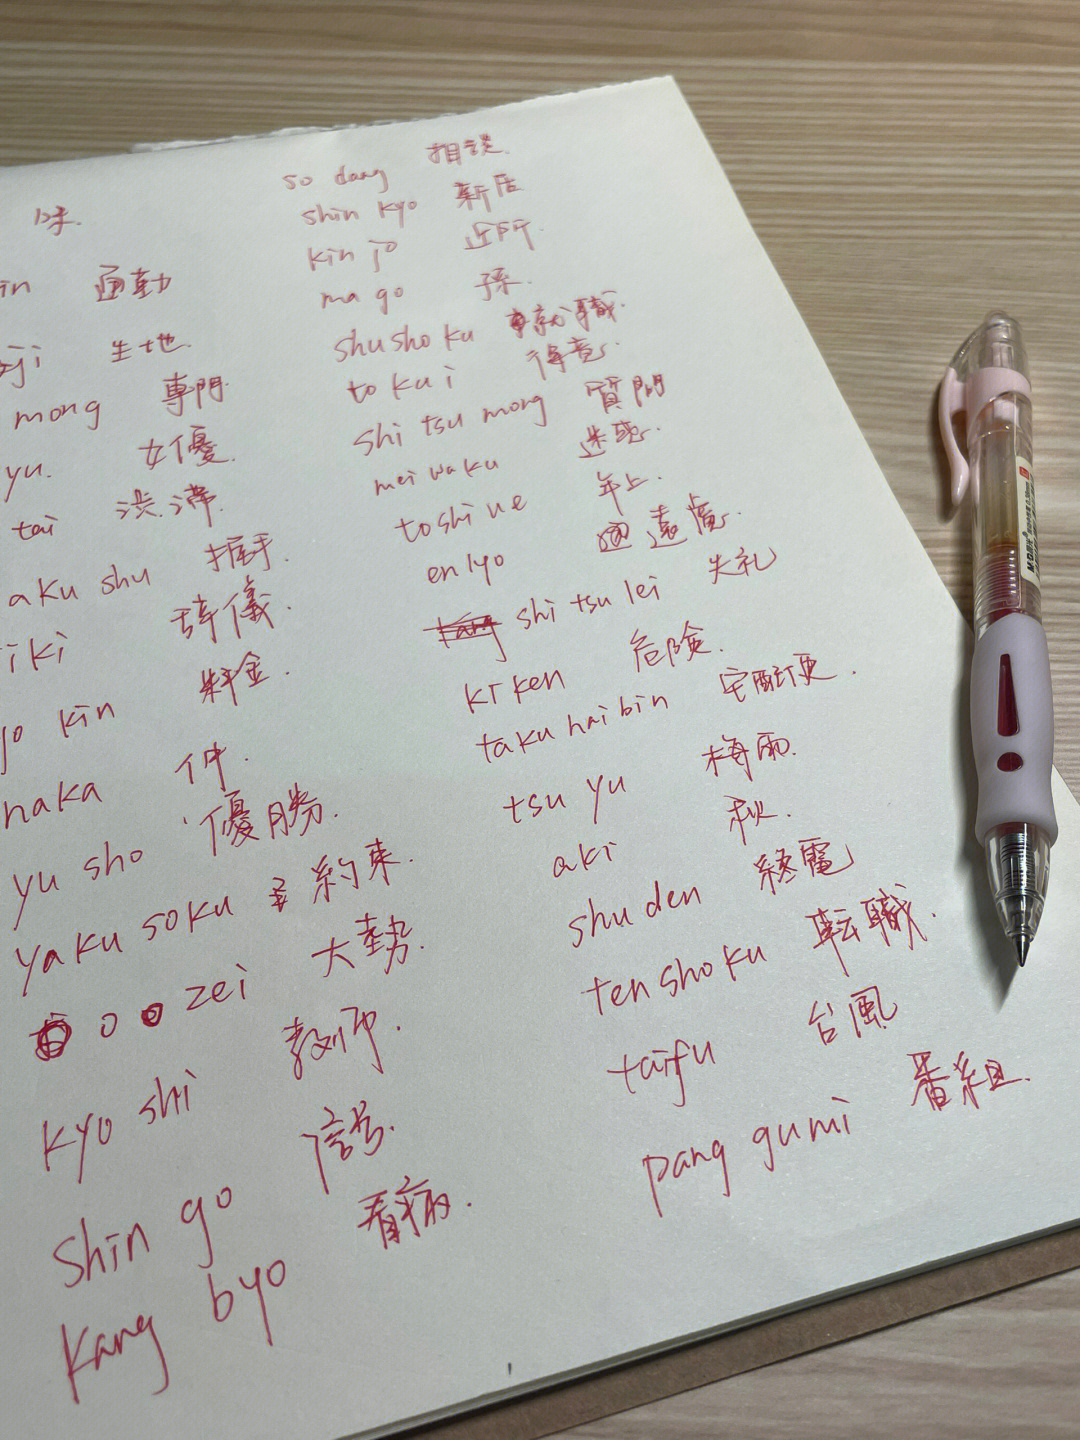 味.
in 通勤
ji 生地.
mong 専門
yu. 女優.
tai 渋滞.
aku shu 握手.
iki 辞儀.
yo kin 料金.
naka 仲.
yu sho 優勝.
yaku soku 約束.
o o zei 大勢.
kyo shi 教师.
shin go 信号.
kang byo 看病.
so dang 相談.
shin kyo 新居
kin jo 近所.
ma go 孫.
shu sho ku 就職.
to ku i 得意.
shi tsu mong 質問
mei wa ku 迷惑.
to shi ue 年上.
en lyo 遠慮.
shi tsu lei 失礼
ki ken 危険.
taku hai bin 宅配便.
tsu yu 梅雨.
aki 秋.
shu den 終電
ten sho ku 転職.
taifu 台風
pang gumi 番組.
M&G